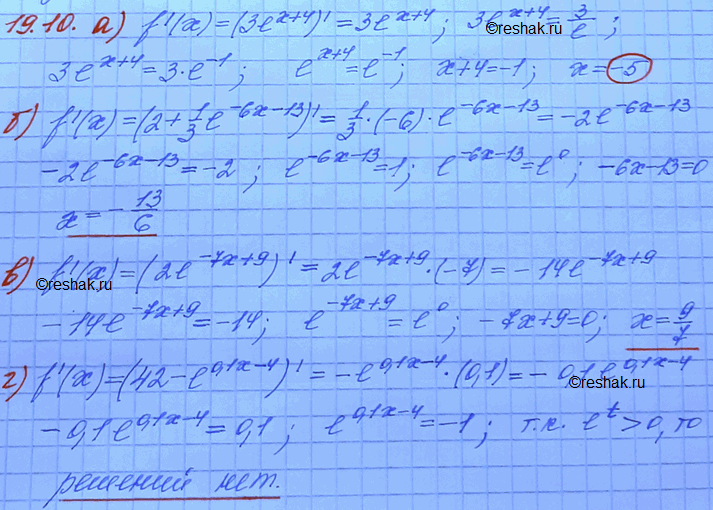 19.10. а) f'(x)=(3e^{x+4})'=3e^{x+4}; 3e^{x+4}=3/e;
©reshak.ru
3e^{x+4}=3·e^{-1}; e^{x+4}=e^{-1}; x+4=-1; x=-5
б) f'(x)=(2+1/3e^{-6x-13})'=1/3·(-6)·e^{-6x-13}=-2e^{-6x-13}
-2e^{-6x-13}=-2; e^{-6x-13}=1; e^{-6x-13}=e^0; -6x-13=0
x=-13/6
в) f'(x)=(2e^{-7x+9})'=2e^{-7x+9}·(-7)=-14e^{-7x+9}
©reshak.ru
-14e^{-7x+9}=-14; e^{-7x+9}=e^0; -7x+9=0; x=9/7
г) f'(x)=(42-e^{0,1x-4})'=-e^{0,1x-4}·(0,1)=-0,1e^{0,1x-4}
©reshak.ru
-0,1e^{0,1x-4}=0,1; e^{0,1x-4}=-1; т.к. e^t>0, то
решений нет.